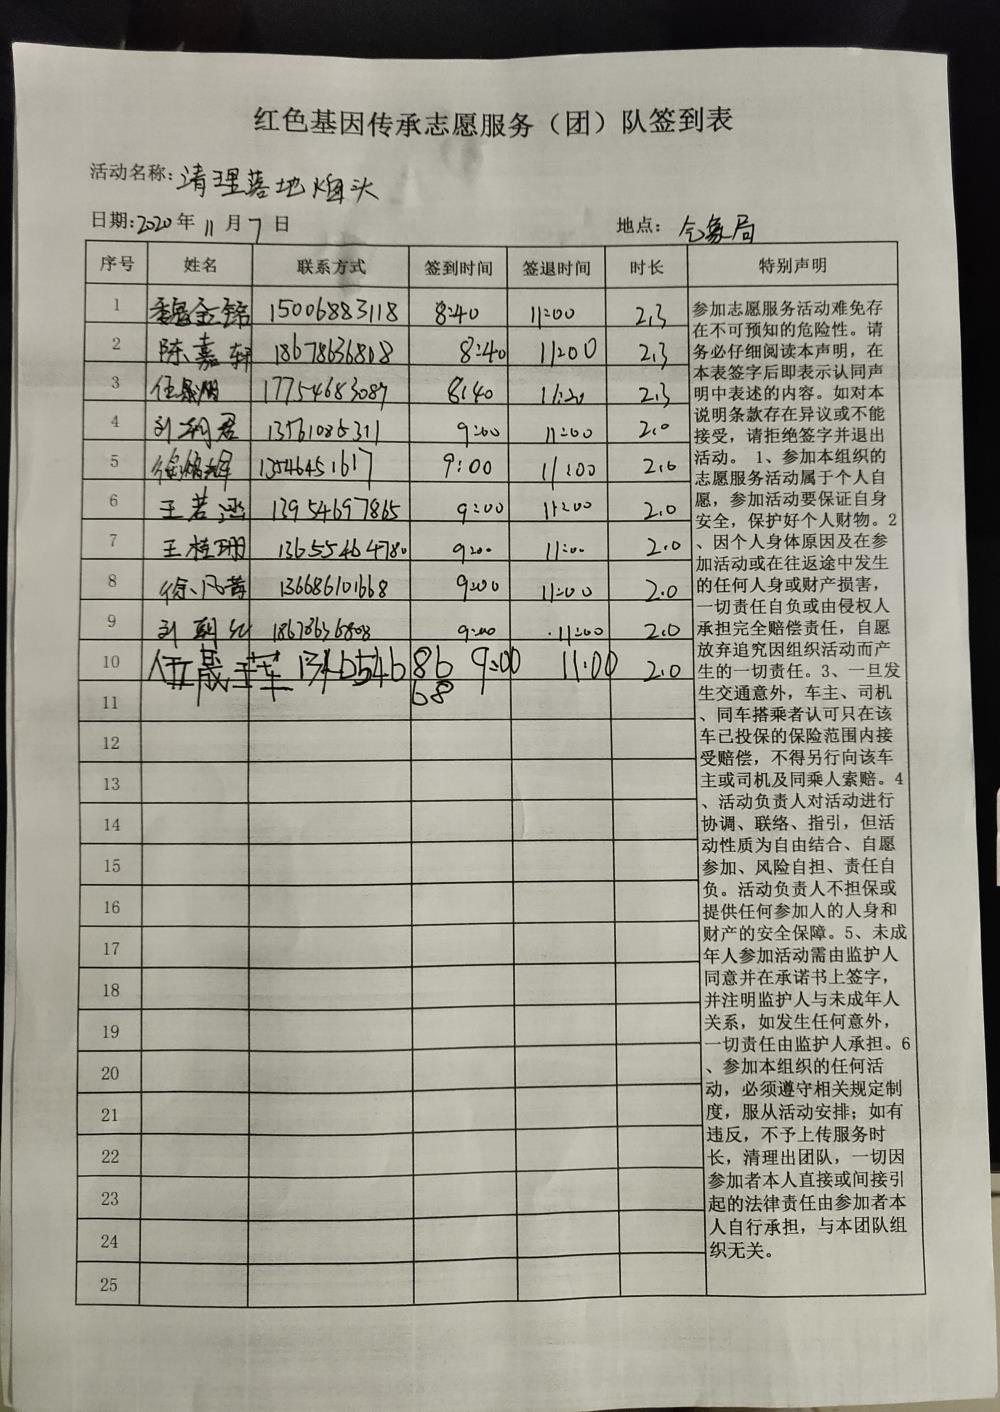 红色基因传承志愿服务（团）队签到表
活动名称：清理落地烟头
日期：2020年11月7日 地点：气象局
序号 姓名 联系方式 签到时间 签退时间 时长 特别声明
1 魏金锦 15006883118 8:40 11:00 2.3
2 陈嘉轩 18678636808 8:40 11:00 2.3
3 17754683087 8:40 11:20 2.3
4 13561085311 9:00 11:00 2.0
5 13546451617 9:00 11:00 2.0
6 王若涵 13954697865 9:00 11:00 2.0
7 王桂珊 13655464780 9:00 11:00 2.0
8 136686101668 9:00 11:00 2.0
9 18678636808 9:00 11:00 2.0
10 1346546 86 9:00 11:00 2.0
11 68
12
13
14
15
16
17
18
19
20
21
22
23
24
25
参加志愿服务活动难免存
在不可预知的危险性。请
务必仔细阅读本声明，在
本表签字后即表示认同声
明中表述的内容。如对本
说明条款存在异议或不能
接受，请拒绝签字并退出
活动。 1、参加本组织的
志愿服务活动属于个人自
愿，参加活动要保证自身
安全，保护好个人财物。2
、因个人身体原因及在参
加活动或在往返途中发生
的任何人身或财产损害，
一切责任自负或由侵权人
承担完全赔偿责任，自愿
放弃追究因组织活动而产
生的一切责任。3、一旦发
生交通意外，车主、司机
、同车搭乘者认可只在该
车已投保的保险范围内接
受赔偿，不得另行向该车
主或司机及同乘人索赔。4
、活动负责人对活动进行
协调、联络、指引，但活
动性质为自由结合、自愿
参加、风险自担、责任自
负。活动负责人不担保或
提供任何参加人的人身和
财产的安全保障。5、未成
年人参加活动需由监护人
同意并在承诺书上签字，
并注明监护人与未成年人
关系，如发生任何意外，
一切责任由监护人承担。6
、参加本组织的任何活
动，必须遵守相关规定制
度，服从活动安排；如有
违反，不予上传服务时
长，清理出团队，一切因
参加者本人直接或间接引
起的法律责任由参加者本
人自行承担，与本团队组
织无关。